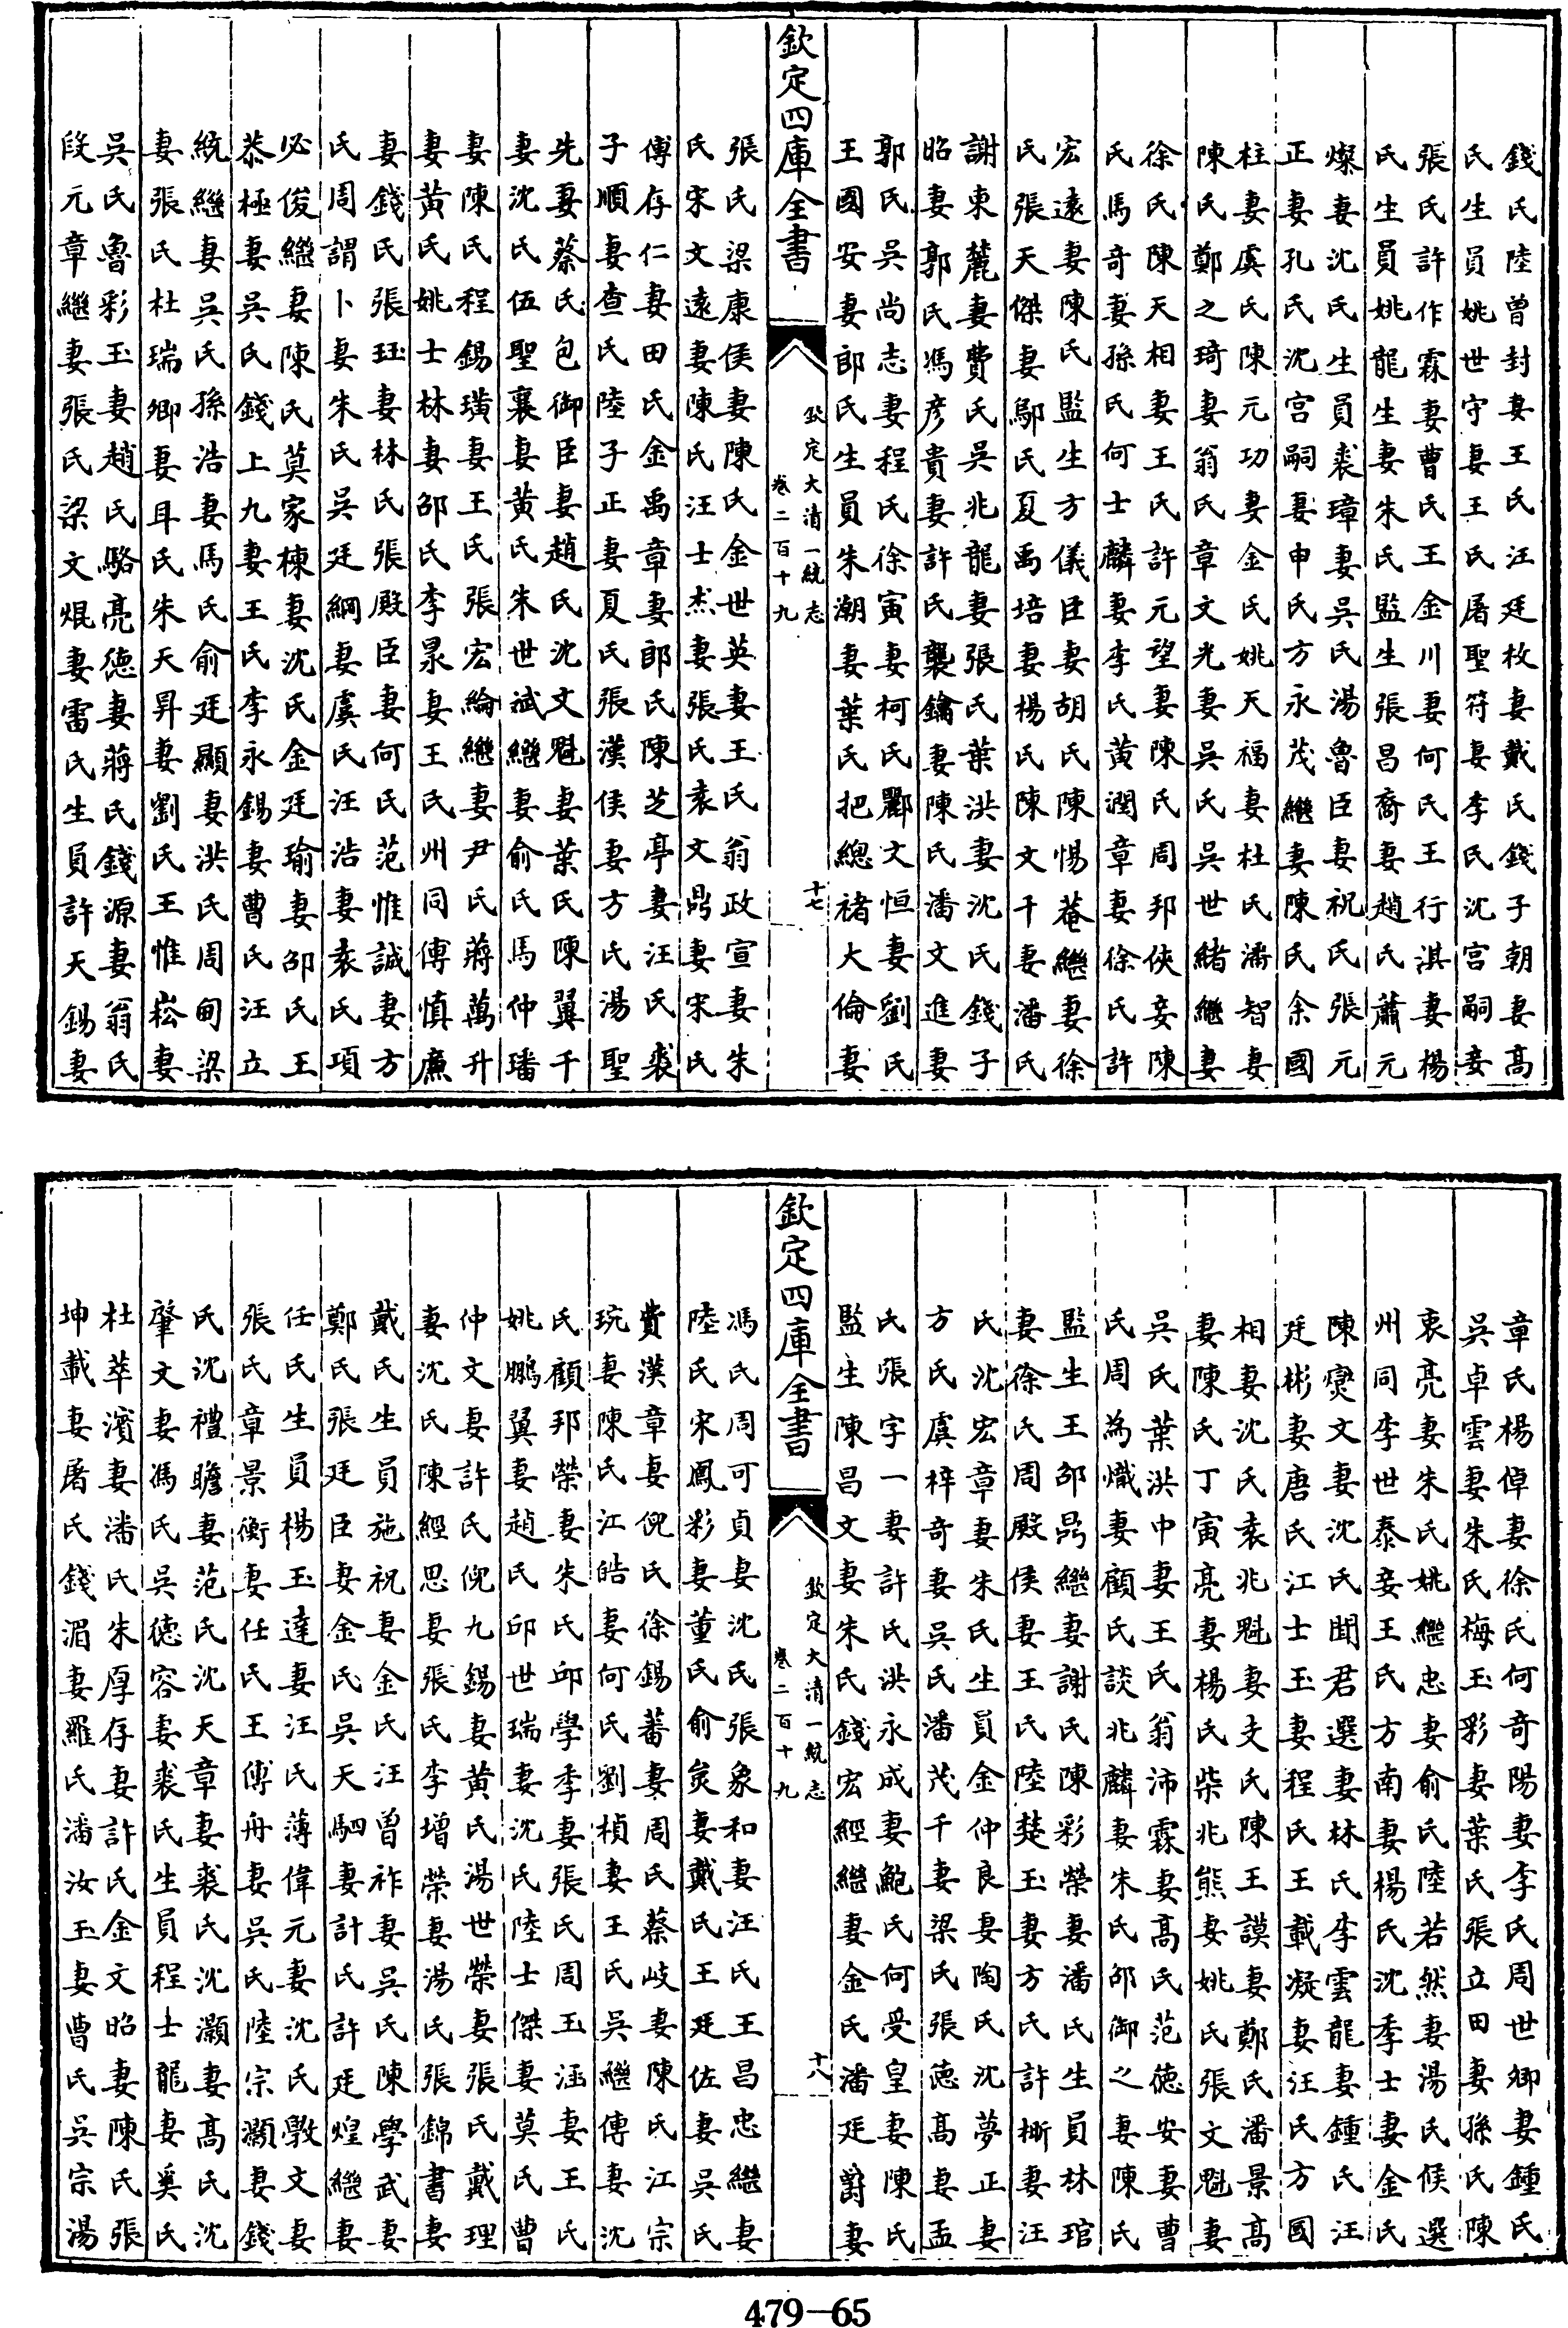 錢氏陸曾封妻王氏汪廷枚妻戴氏錢子朝妻高
氏生員姚世守妻王氏屠聖符妻李氏沈宫嗣妾
張氏許作霖妻曹氏王金川妻何氏王行淇妻楊
氏生員姚龍生妻朱氏監生張昌裔妻趙氏蕭元
燦妻沈氏生員裘璋妻吳氏湯魯臣妻祝氏張元
正妻孔氏沈宫嗣妻申氏方永茂繼妻陳氏余國
柱妻虞氏陳元功妻金氏姚天福妻杜氏潘智妻
陳氏鄭之琦妻翁氏章文光妻吳氏吳世緒繼妻
徐氏陳天相妻王氏許元望妻陳氏周邦俠妾陳
氏馬奇妻孫氏何士麟妻李氏黃潤章妻徐氏許
宏遠妻陳氏監生方儀臣妻胡氏陳惕菴繼妻徐
氏張天傑妻鄔氏夏禹培妻楊氏陳文千妻潘氏
謝東麓妻費氏吳兆龍妻張氏葉洪妻沈氏錢子
昭妻郭氏馮彥貴妻許氏龔鏞妻陳氏潘文進妻
郭氏吳尚志妻程氏徐寅妻柯氏酈文恒妻劉氏
王國安妻郎氏生員朱潮妻葉氏把總褚大倫妻
欽定四庫全書
欽定大清一統志
卷二百十九
十七
張氏梁康侯妻陳氏金世英妻王氏翁政宣妻朱
氏宋文遠妻陳氏汪士杰妻張氏袁文鼎妻宋氏
傅存仁妻田氏金禹章妻郎氏陳芝亭妻汪氏裘
子順妻查氏陸子正妻夏氏張漢侯妻方氏湯聖
先妻蔡氏包御臣妻趙氏沈文魁妻葉氏陳翼千
妻沈氏伍聖襄妻黃氏朱世斌繼妻俞氏馬仲璠
妻陳氏程錫璜妻王氏張宏綸繼妻尹氏蔣萬升
妻黃氏姚士林妻邵氏李泉妻王氏州同傅慎廉
妻錢氏張珏妻林氏張殿臣妻何氏范惟誠妻方
氏周謂卜妻朱氏吳廷綱妻虞氏汪浩妻袁氏項
必俊繼妻陳氏莫家棟妻沈氏金廷瑜妻邵氏王
恭極妻吳氏錢上九妻王氏李永錫妻曹氏汪立
統繼妻吳氏孫浩妻馬氏俞廷顯妻洪氏周甸梁
妻張氏杜瑞卿妻耳氏朱天昇妻劉氏王惟崧妻
吳氏魯彩玉妻趙氏駱亮德妻蔣氏錢源妻翁氏
段元章繼妻張氏梁文焜妻雷氏生員許天錫妻
章氏楊倬妻徐氏何奇陽妻李氏周世卿妻鍾氏
吳卓雲妻朱氏梅玉彩妻葉氏張立田妻孫氏陳
衷亮妻朱氏姚繼忠妻俞氏陸若然妻湯氏候選
州同李世泰妾王氏方南妻楊氏沈季士妻金氏
陳爕文妻沈氏聞君選妻林氏李雲龍妻鍾氏汪
廷彬妻唐氏江士玉妻程氏王載凝妻汪氏方國
相妻沈氏袁兆魁妻支氏陳王謨妻鄭氏潘景高
妻陳氏丁寅亮妻楊氏柴兆熊妻姚氏張文魁妻
吳氏葉洪中妻王氏翁沛霖妻高氏范德安妻曹
氏周為熾妻顧氏談兆麟妻朱氏邵御之妻陳氏
監生王邵昺繼妻謝氏陳彩榮妻潘氏生員林琯
妻徐氏周殿侯妻王氏陸楚玉妻方氏許斯妻汪
氏沈宏章妻朱氏生員金仲良妻陶氏沈夢正妻
方氏虞梓奇妻吳氏潘茂千妻梁氏張德高妻孟
氏張字一妻許氏洪永成妻鮑氏何受皇妻陳氏
監生陳昌文妻朱氏錢宏經繼妻金氏潘廷爵妻
欽定四庫全書
欽定大清一統志
卷二百十九
十八
馮氏周可貞妻沈氏張象和妻汪氏王昌忠繼妻
陸氏宋鳳彩妻董氏俞炱妻戴氏王廷佐妻吳氏
費漢章妻倪氏徐錫蕃妻周氏蔡岐妻陳氏江宗
琬妻陳氏江皓妻何氏劉楨妻王氏吳繼傅妻沈
氏顧邦榮妻朱氏邱學季妻張氏周玉涵妻王氏
姚鵬翼妻趙氏邱世瑞妻沈氏陸士傑妻莫氏曹
仲文妻許氏倪九錫妻黃氏湯世榮妻張氏戴理
妻沈氏陳經思妻張氏李增榮妻湯氏張錦書妻
戴氏生員施祝妻金氏汪曾祚妻吳氏陳學武妻
鄭氏張廷臣妻金氏吳天駟妻計氏許廷煌繼妻
任氏生員楊玉達妻汪氏薄偉元妻沈氏斆文妻
張氏章景衡妻任氏王傅舟妻吳氏陸宗灝妻錢
氏沈禮瞻妻范氏沈天章妻裘氏沈灝妻高氏沈
肇文妻馮氏吳德容妻裘氏生員程士龍妻奚氏
杜萃濱妻潘氏朱厚存妻許氏金文昭妻陳氏張
坤載妻屠氏錢湄妻羅氏潘汝玉妻曹氏吳宗湯
479—65